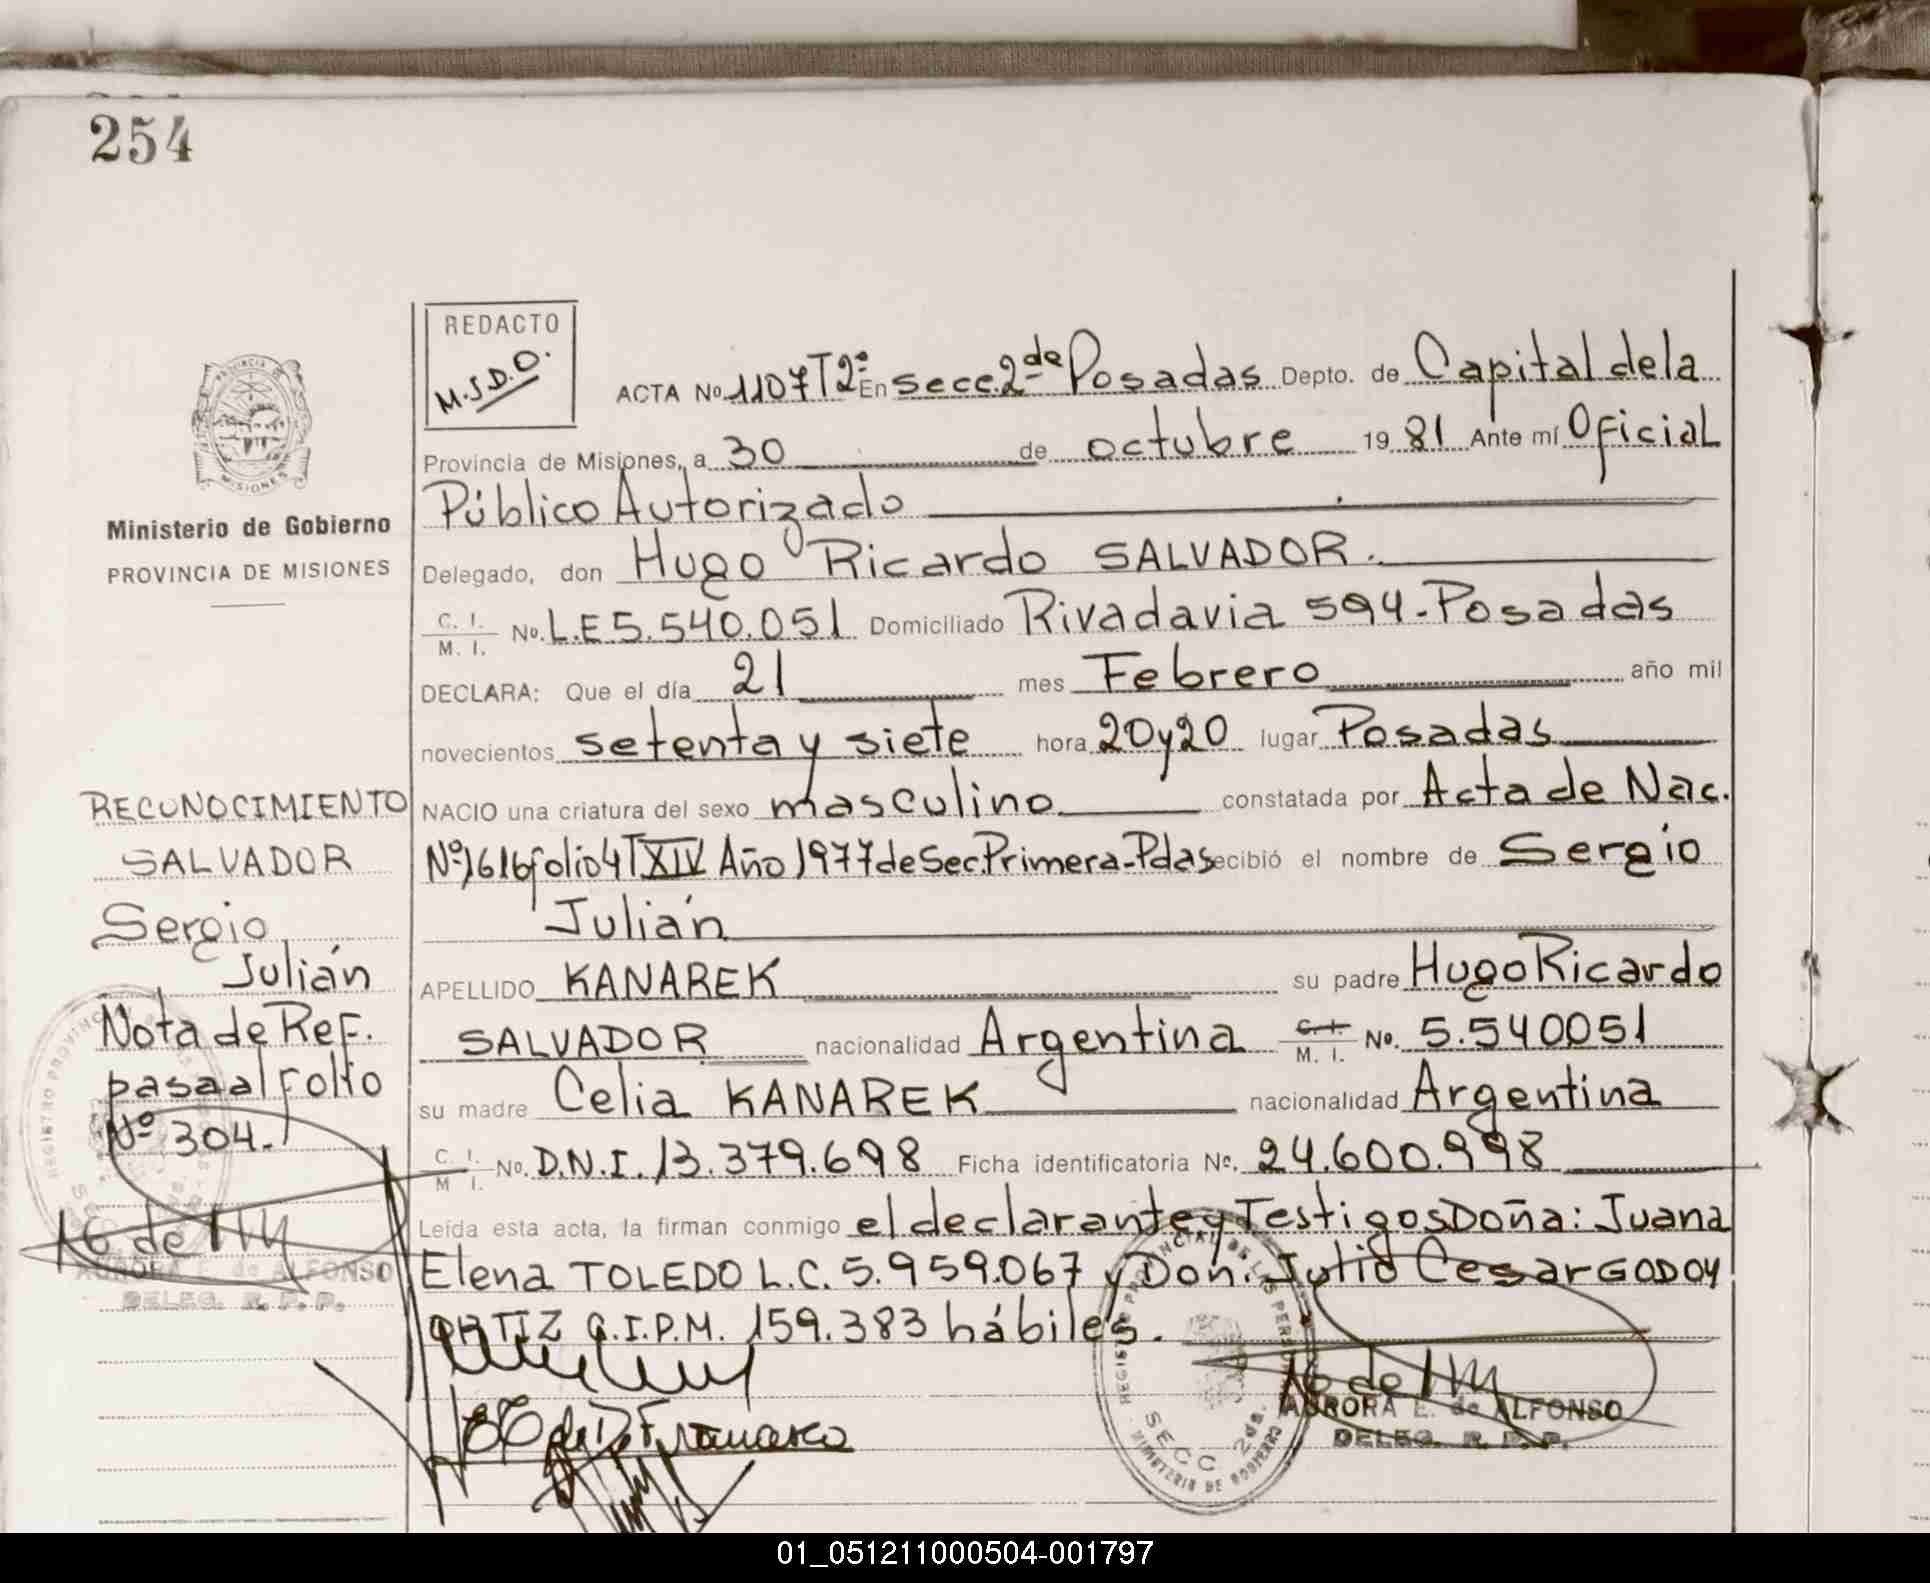 254
REDACTO
M.J.D.O.
ACTA No 1107 T2º En Secc. 2da Posadas Depto. de Capital de la
Provincia de Misiones, a 30 de octubre 1981 Ante mí Oficial
Público Autorizado
Delegado, don Hugo Ricardo SALVADOR.
C. I. / M. I. No. L.E 5.540.051 Domiciliado Rivadavia 594-Posadas
DECLARA: Que el día 21 mes Febrero año mil
novecientos setenta y siete hora 20y20 lugar Posadas
NACIO una criatura del sexo masculino constatada por Acta de Nac.
Nº 1616 folio 4 T XIV Año 1977 de Sec. Primera-Pdas ecibió el nombre de Sergio
Julián
APELLIDO KANAREK su padre Hugo Ricardo
SALVADOR nacionalidad Argentina C. I. / M. I. No. 5.540051
su madre Celia KANAREK nacionalidad Argentina
C. I. / M I. No. D.N.I. 13.379.698 Ficha identificatoria No. 24.600.998
Leída esta acta, la firman conmigo el declarante y Testigos Doña: Juana
Elena TOLEDO L.C. 5.959.067 y Don: Julio Cesar GODOY
ORTIZ C.I.P.M. 159.383 hábiles.
AURORA E. de ALFONSO
DELEG. R. P. P.
REGISTRO PROVINCIAL DE LAS PERS
SECC 2da.
MINISTERIO DE GOBIERNO
PROVINCIA DE
MISIONES
Ministerio de Gobierno
PROVINCIA DE MISIONES
RECONOCIMIENTO
SALVADOR
Sergio
Julián
Nota de Ref.
pasa al Folio
Nº 304.
AURORA E. de ALFONSO
DELEG. R. P. P.
01_051211000504-001797